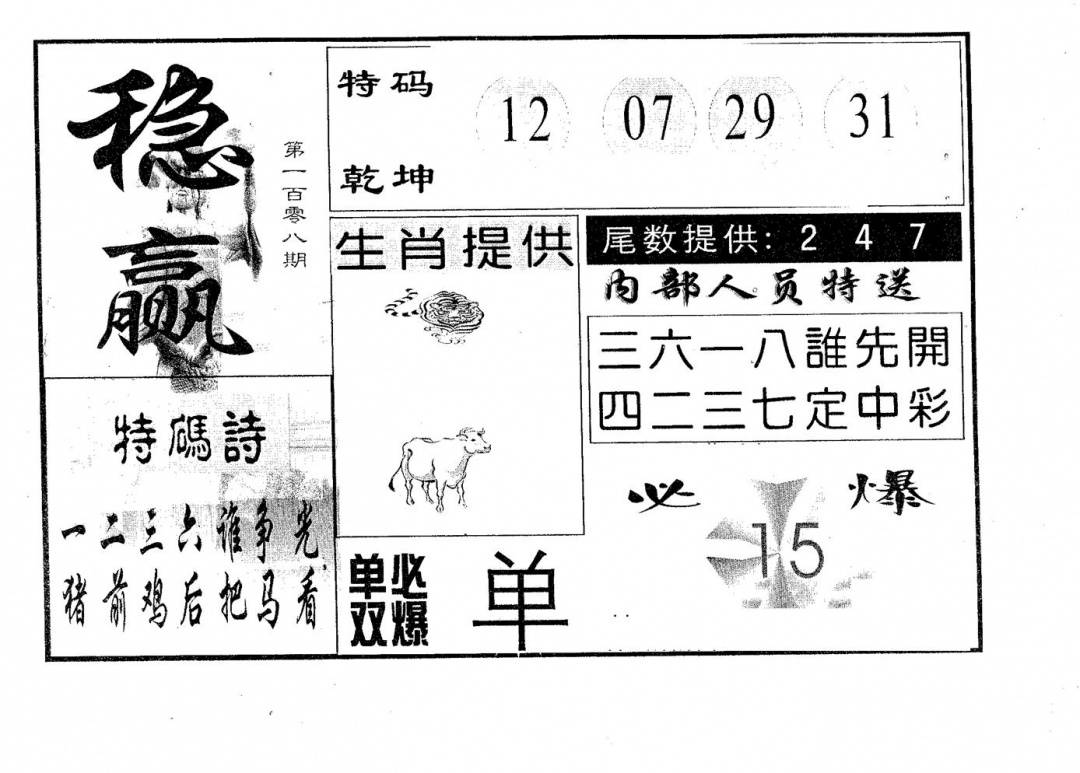 稳赢
第一百零八期
特码
乾坤
12 07 29 31
生肖提供
尾数提供：2 4 7
内部人员特送
三六一八誰先開
四二三七定中彩
特碼詩
一二三六谁争光
猪前鸡后把马看
单双
必爆
单
必爆
15